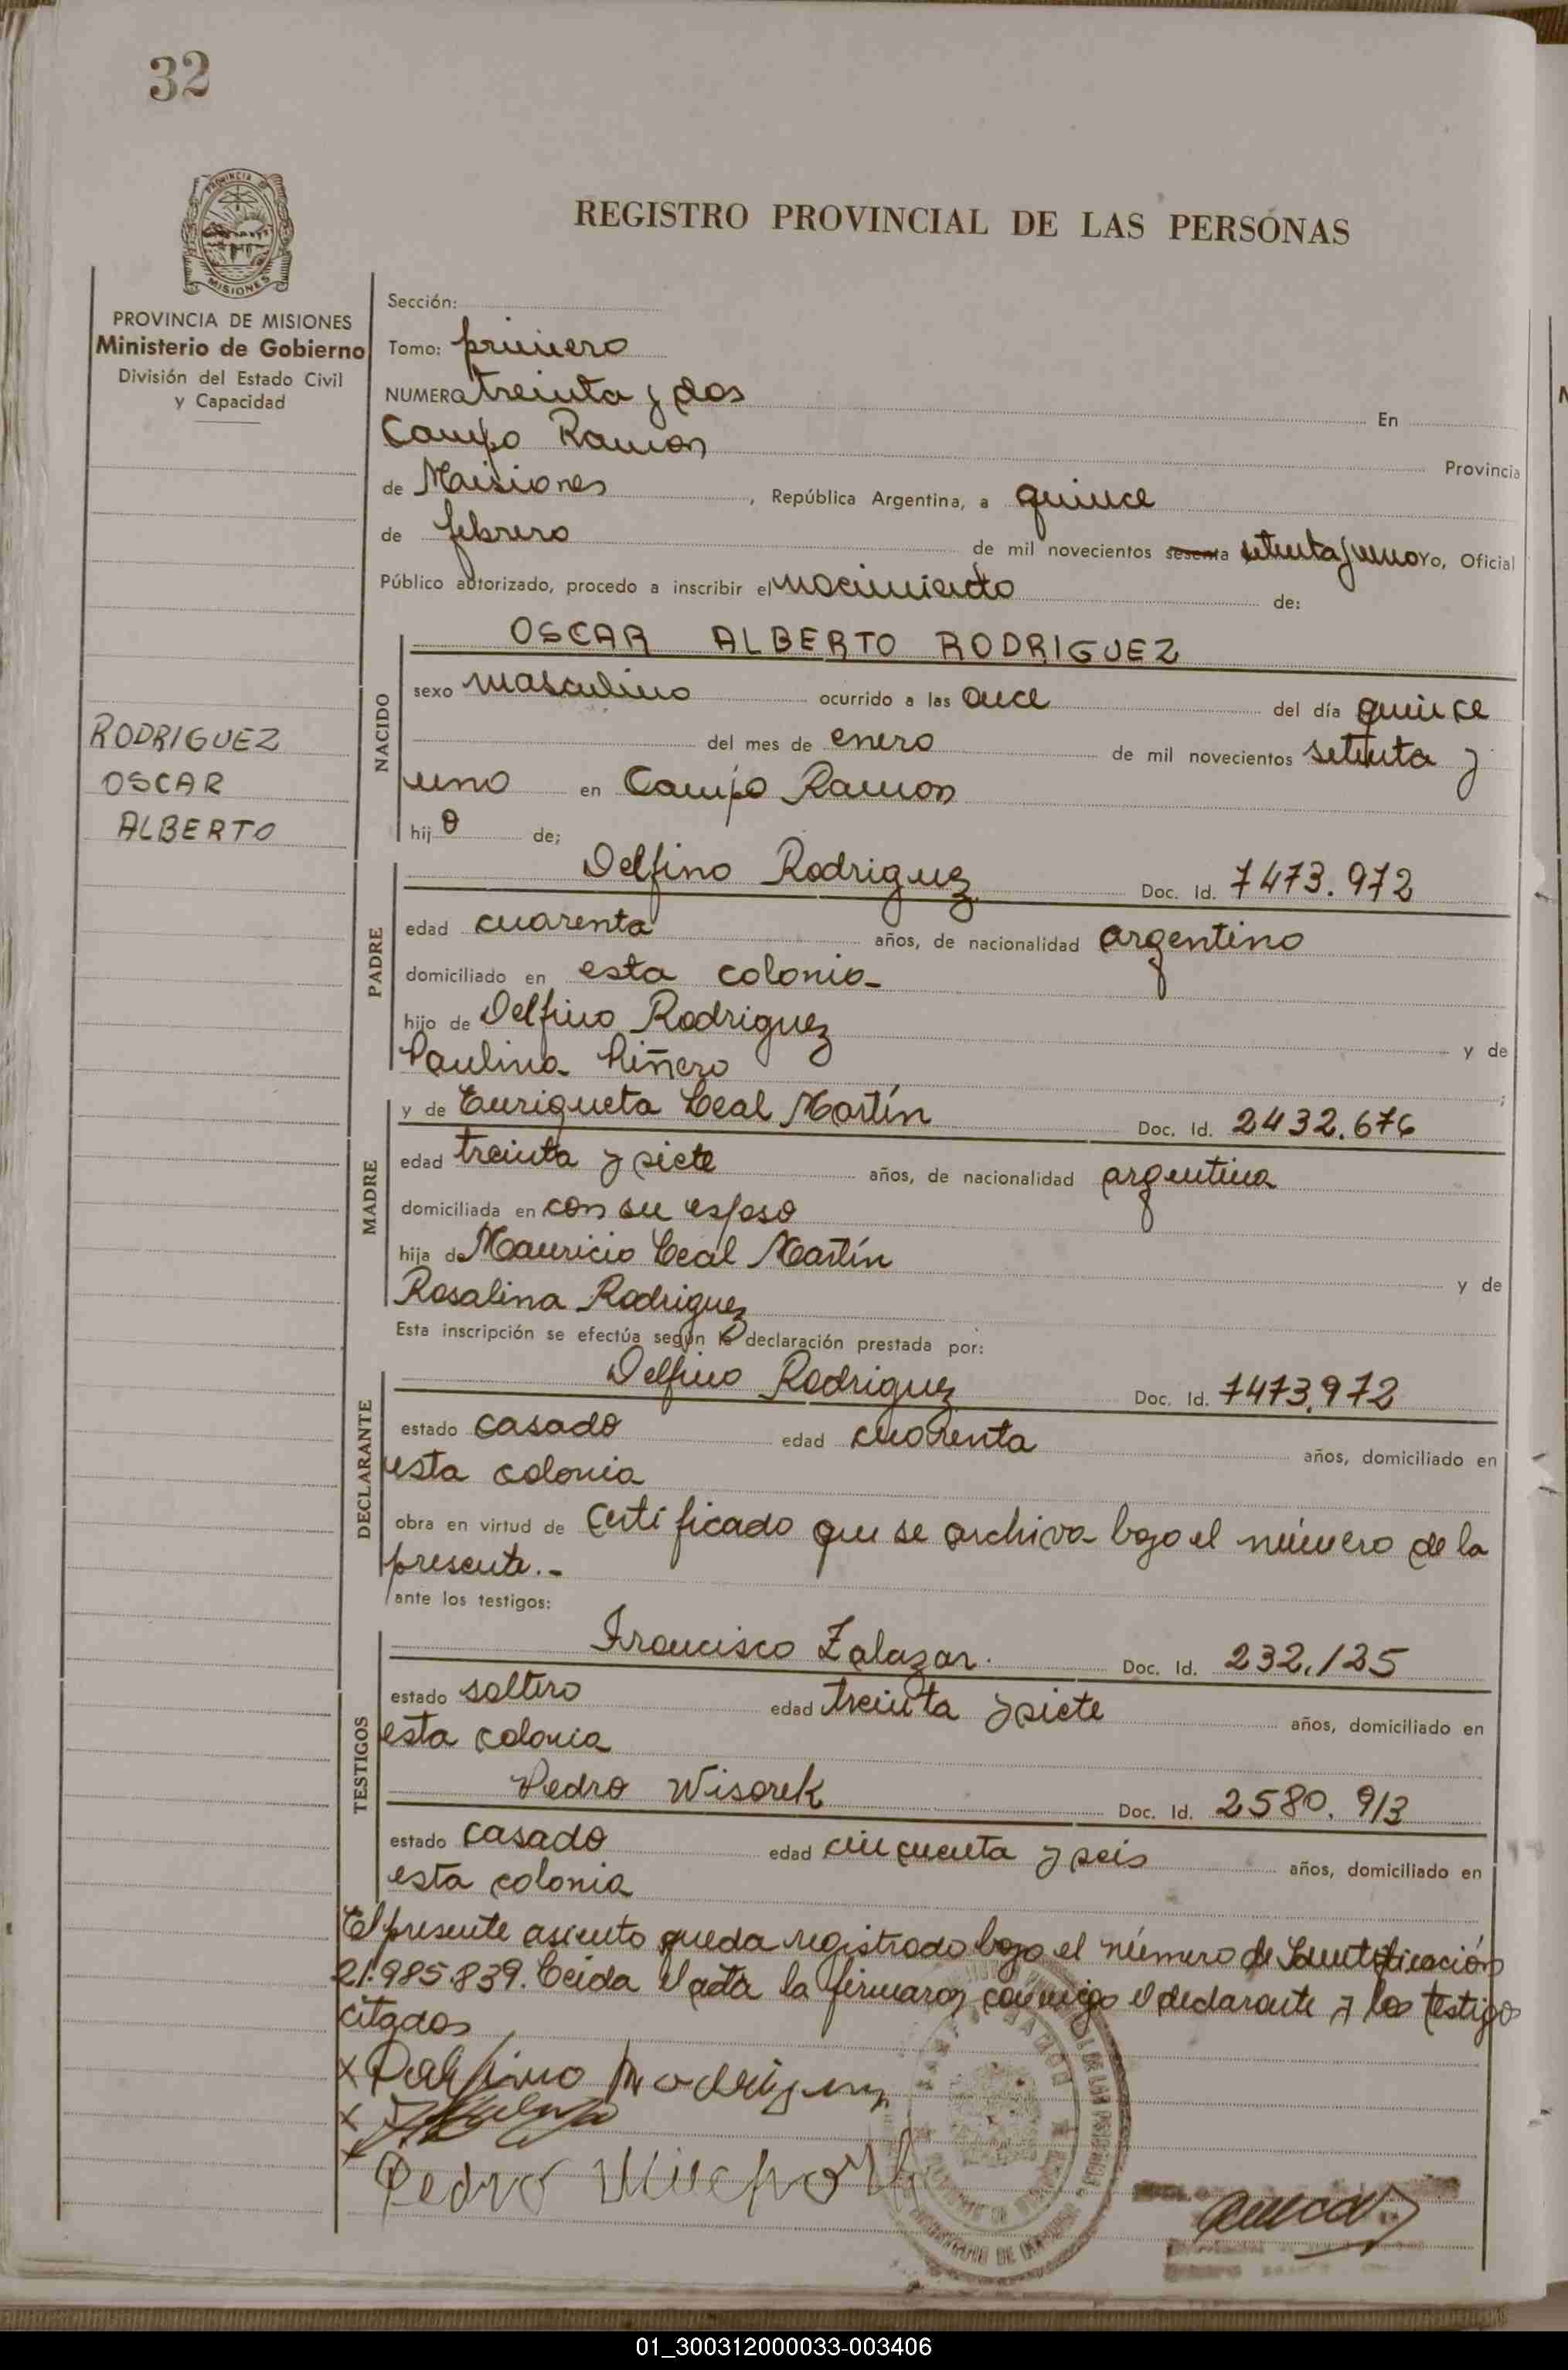 32
PROVINCIA DE
MISIONES
REGISTRO PROVINCIAL DE LAS PERSONAS
PROVINCIA DE MISIONES
Ministerio de Gobierno
División del Estado Civil
y Capacidad
Sección:
Tomo: primero
NUMERO treinta y dos En
Campo Ramon Provincia
de Misiones, República Argentina, a quince
de febrero de mil novecientos sesenta setenta y uno Yo, Oficial
Público autorizado, procedo a inscribir el nacimiento de:
RODRIGUEZ
OSCAR
ALBERTO
NACIDO
OSCAR ALBERTO RODRIGUEZ
sexo masculino ocurrido a las once del día quince
del mes de enero de mil novecientos setenta y
uno en Campo Ramon
hijo de;
PADRE
Delfino Rodriguez Doc. Id. 7473.972
edad cuarenta años, de nacionalidad argentino
domiciliado en esta colonia-
hijo de Delfino Rodriguez y de
Paulina Piñero;
MADRE
y de Enriqueta Leal Martín Doc. Id. 2432.676
edad treinta y siete años, de nacionalidad argentina
domiciliada en con su esposo
hija de Mauricio Leal Martín y de
Rosalina Rodriguez
Esta inscripción se efectúa según la declaración prestada por:
DECLARANTE
Delfino Rodriguez Doc. Id. 7473.972
estado casado edad cuarenta años, domiciliado en
esta colonia
obra en virtud de certificado que se archiva bajo el número de la
presente.-
ante los testigos:
TESTIGOS
Francisco Zalazar. Doc. Id. 232.125
estado soltero edad treinta y siete años, domiciliado en
esta colonia
Pedro Wisorek Doc. Id. 2580.913
estado casado edad cincuenta y seis años, domiciliado en
esta colonia
El presente asiento queda registrado bajo el número de Identificación
21.985.839. Leida el acta la firmaron conmigo el declarante y los testigos
citados
x Delfino Rodriguez
x
x Pedro
01_300312000033-003406